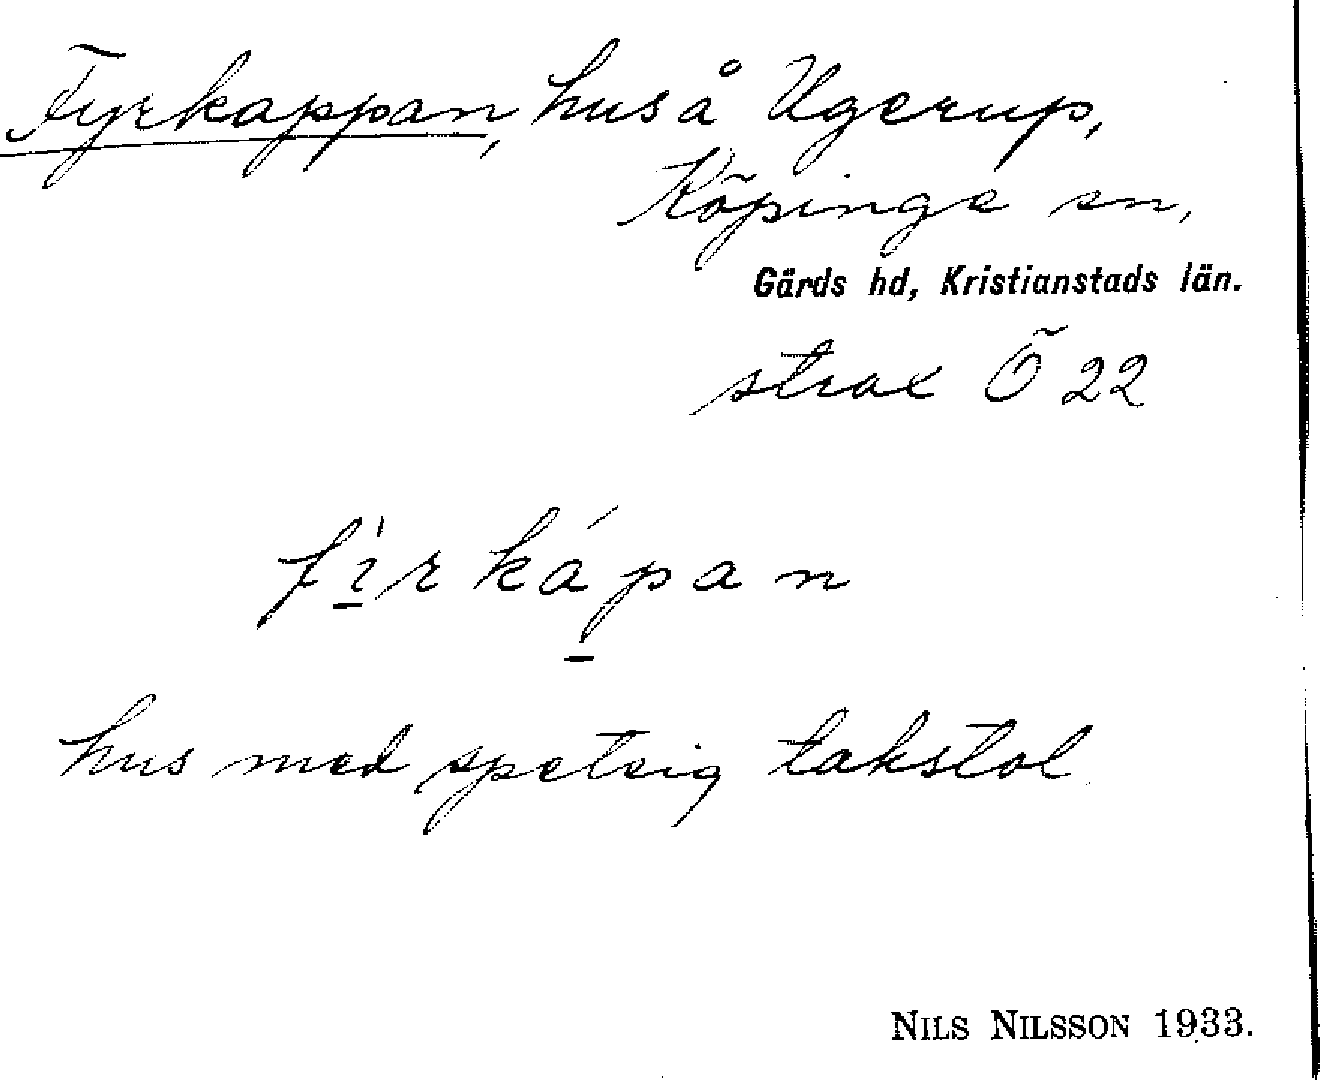 Fyrkappan, hus å Ugerup,
Köpinge sn,
Gärds hd, Kristianstads län.
strax Ö 22
fìrkápan
hus med spetsig takstol
NILS NILSSON 1933.